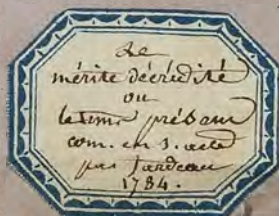 Le
mérite décrédité
ou
le tems présent
com. en 3. actes
par Tardeau
1784.